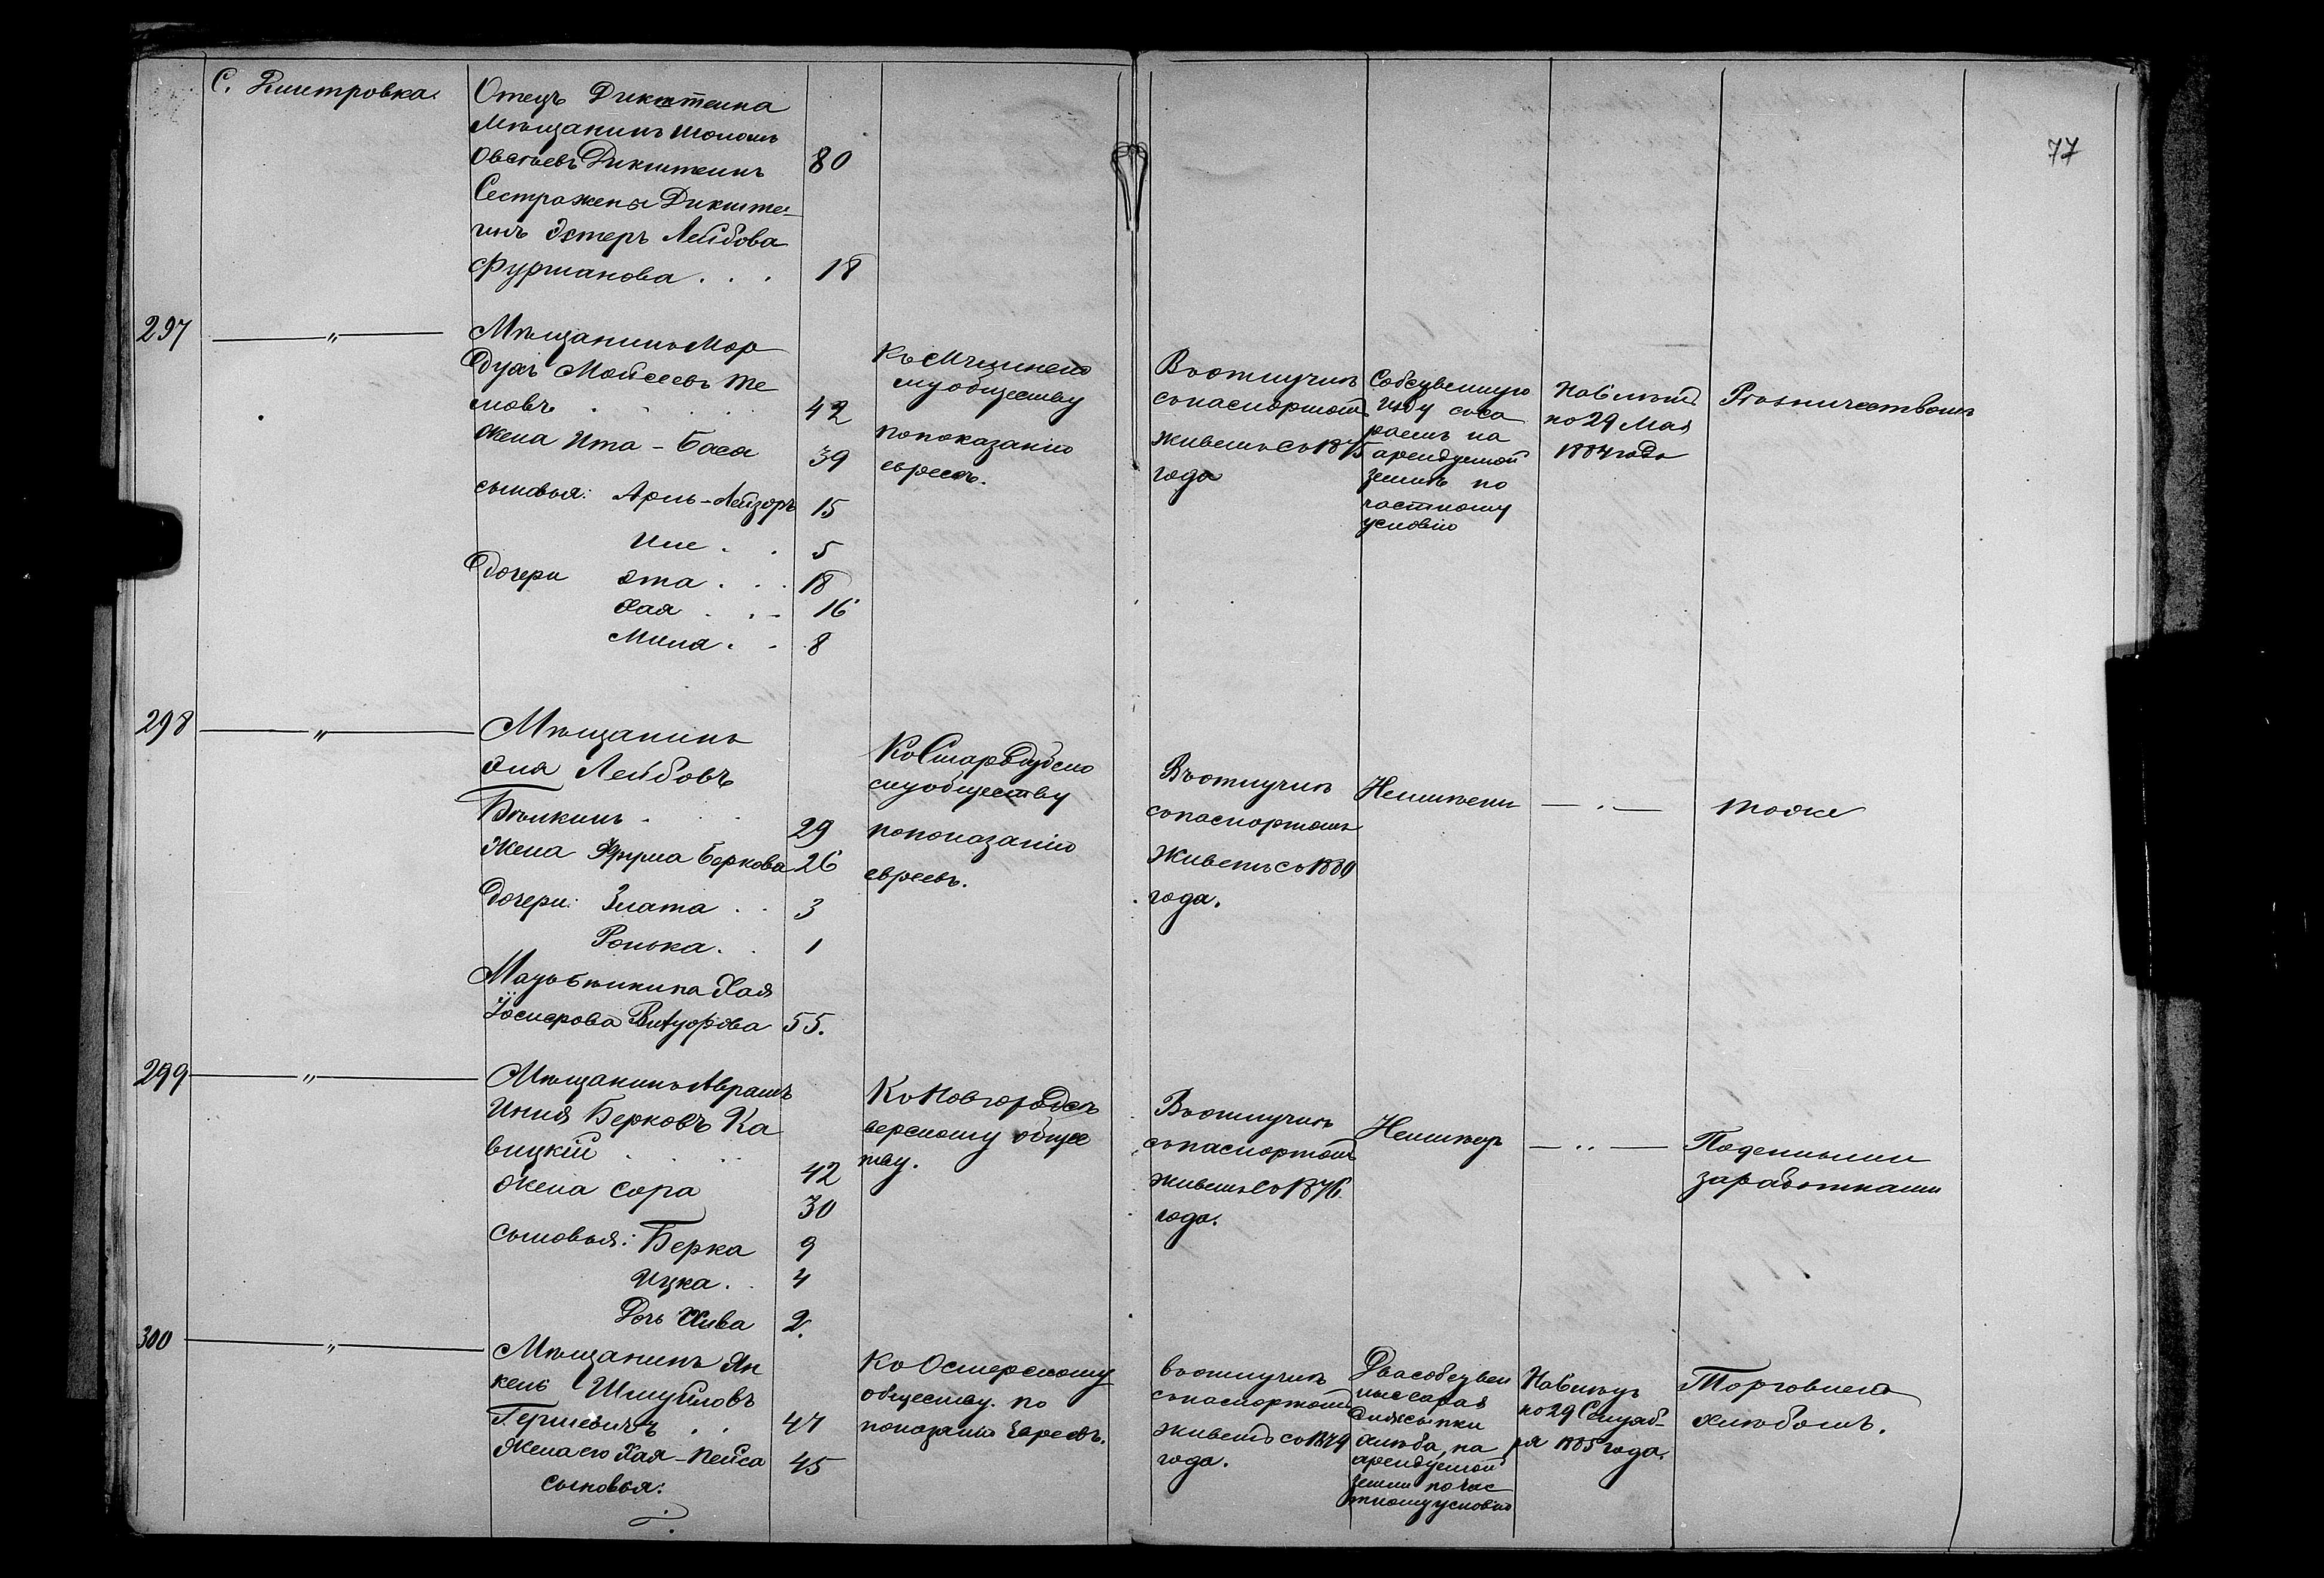 77
С. Дмитровка.
Отецъ Дикштеина
Мѣщанинъ Шоломъ
Овсѣевъ Дикштеинъ 80
Сестра жены Дикште-
инъ Эстеръ Лейбова
Фурманова . . . 18
297 —— „ —— Мѣщанинъ Мор
духъ Мойсеевъ Те
мовъ . . . . 42
Жена Ита - Бася 39
сыновья: Арль - Лейзоръ 15
5
Дочери Эта . . . 18
Хая . . - 16
Мина . - 8
Къ Мглинско
му обществу
по показанію
евреевъ.
Въ отлучкѣ
съ паспортомъ
живетъ съ 1875
года
Собственную
избу съ са
раемъ на
арендуемой
землѣ по
частному
условію
На 6 лѣтъ
по 29 Мая
1884 года
298 —— „ —— Мѣщанинъ
Лейбовъ
Бѣлкинъ . . . 29
Жена Фрума Беркова 26
Дочери: Злата . . 3
Ронька . . 1
Мать Бѣлкина Хая
55.
Къ Стародубско
му обществу
по показанію
евреевъ.
Въ отлучкѣ
съ паспортомъ
Живетъ съ 1880
года.
Неимѣетъ — . — тоже
299 —— „ —— Мѣщанинъ Аврамъ
Берковъ Ка
вицкій . . . 42
Жена Сора 30
Сыновья: Берка 9
Ицка . . 4
Дочь Хива 2.
Къ Новгородсѣ
верскому обще
тву.
Въ отлучкѣ
съ паспортомъ
живетъ съ 1876
года.
Неимѣетъ — .. — Поденными
заработками
300 —— „ —— Мѣщанинъ Ян
кель Шмуйловъ
Гершевичъ . . 47
Жена его Хая - Пейса 45
сыновья:
Къ Остерскому
обществу. по
показанію Евреевъ.
въ отлучкѣ
съ паспортомъ
живетъ съ 1879
года.
Два собствен
ные сарая
для ссыпки
хлѣба, на
арендуемой
земли по час
тному условію
На 6 лѣтъ
по 29 Сентяб-
ря 1885 года.
Торговлею
хлѣбомъ.